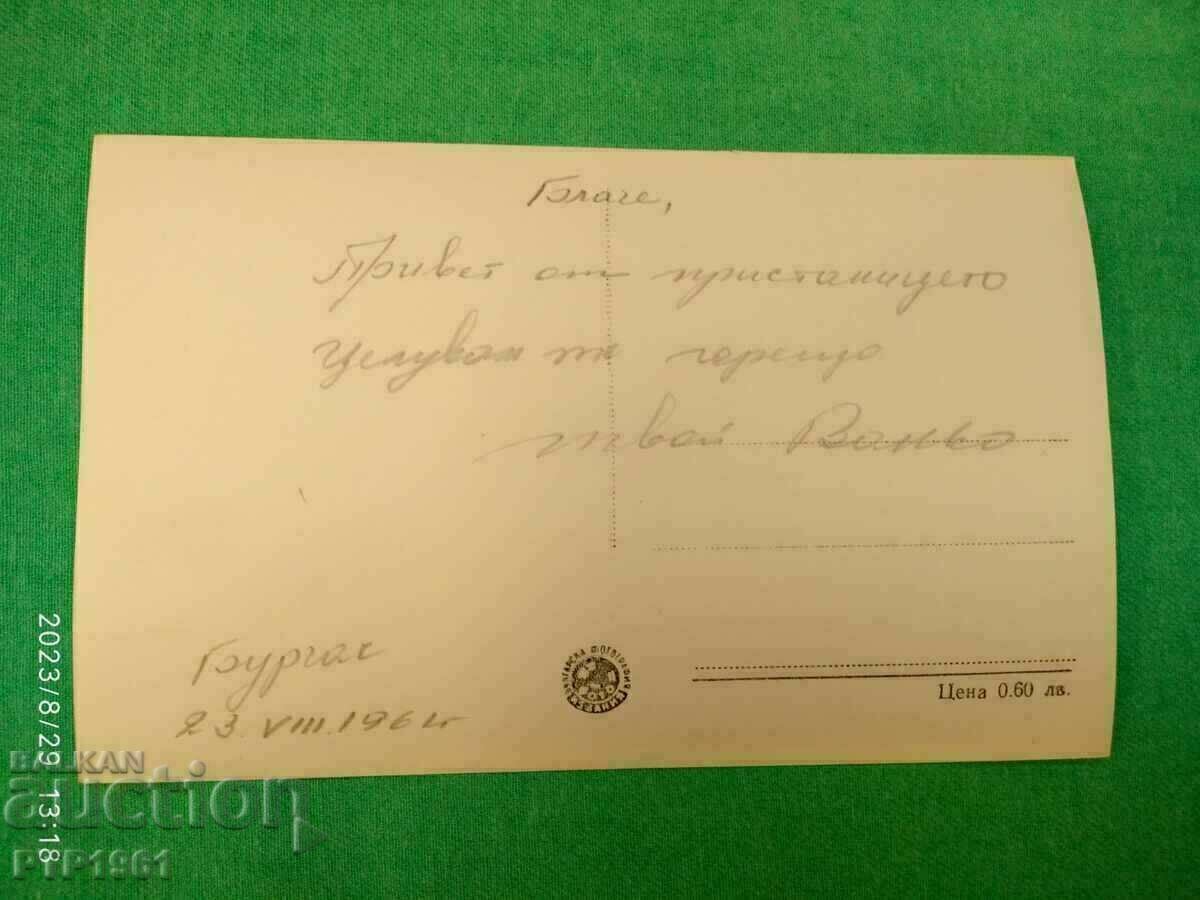 Благе,
Привет от пристанището
Целувам те горещо
твой Ваньо
Бургас
23.VIII.196
БЪЛГАРСКА ФОТОГРАФИЯ
Цена 0.60 лв.
2023/8/29 13:18
BALKAN
auction
PTP1961